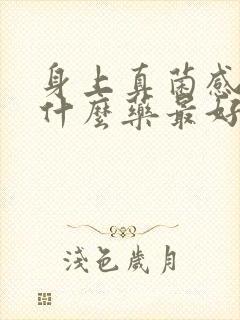 身上真菌感
什麼藥最好
淺色歲月